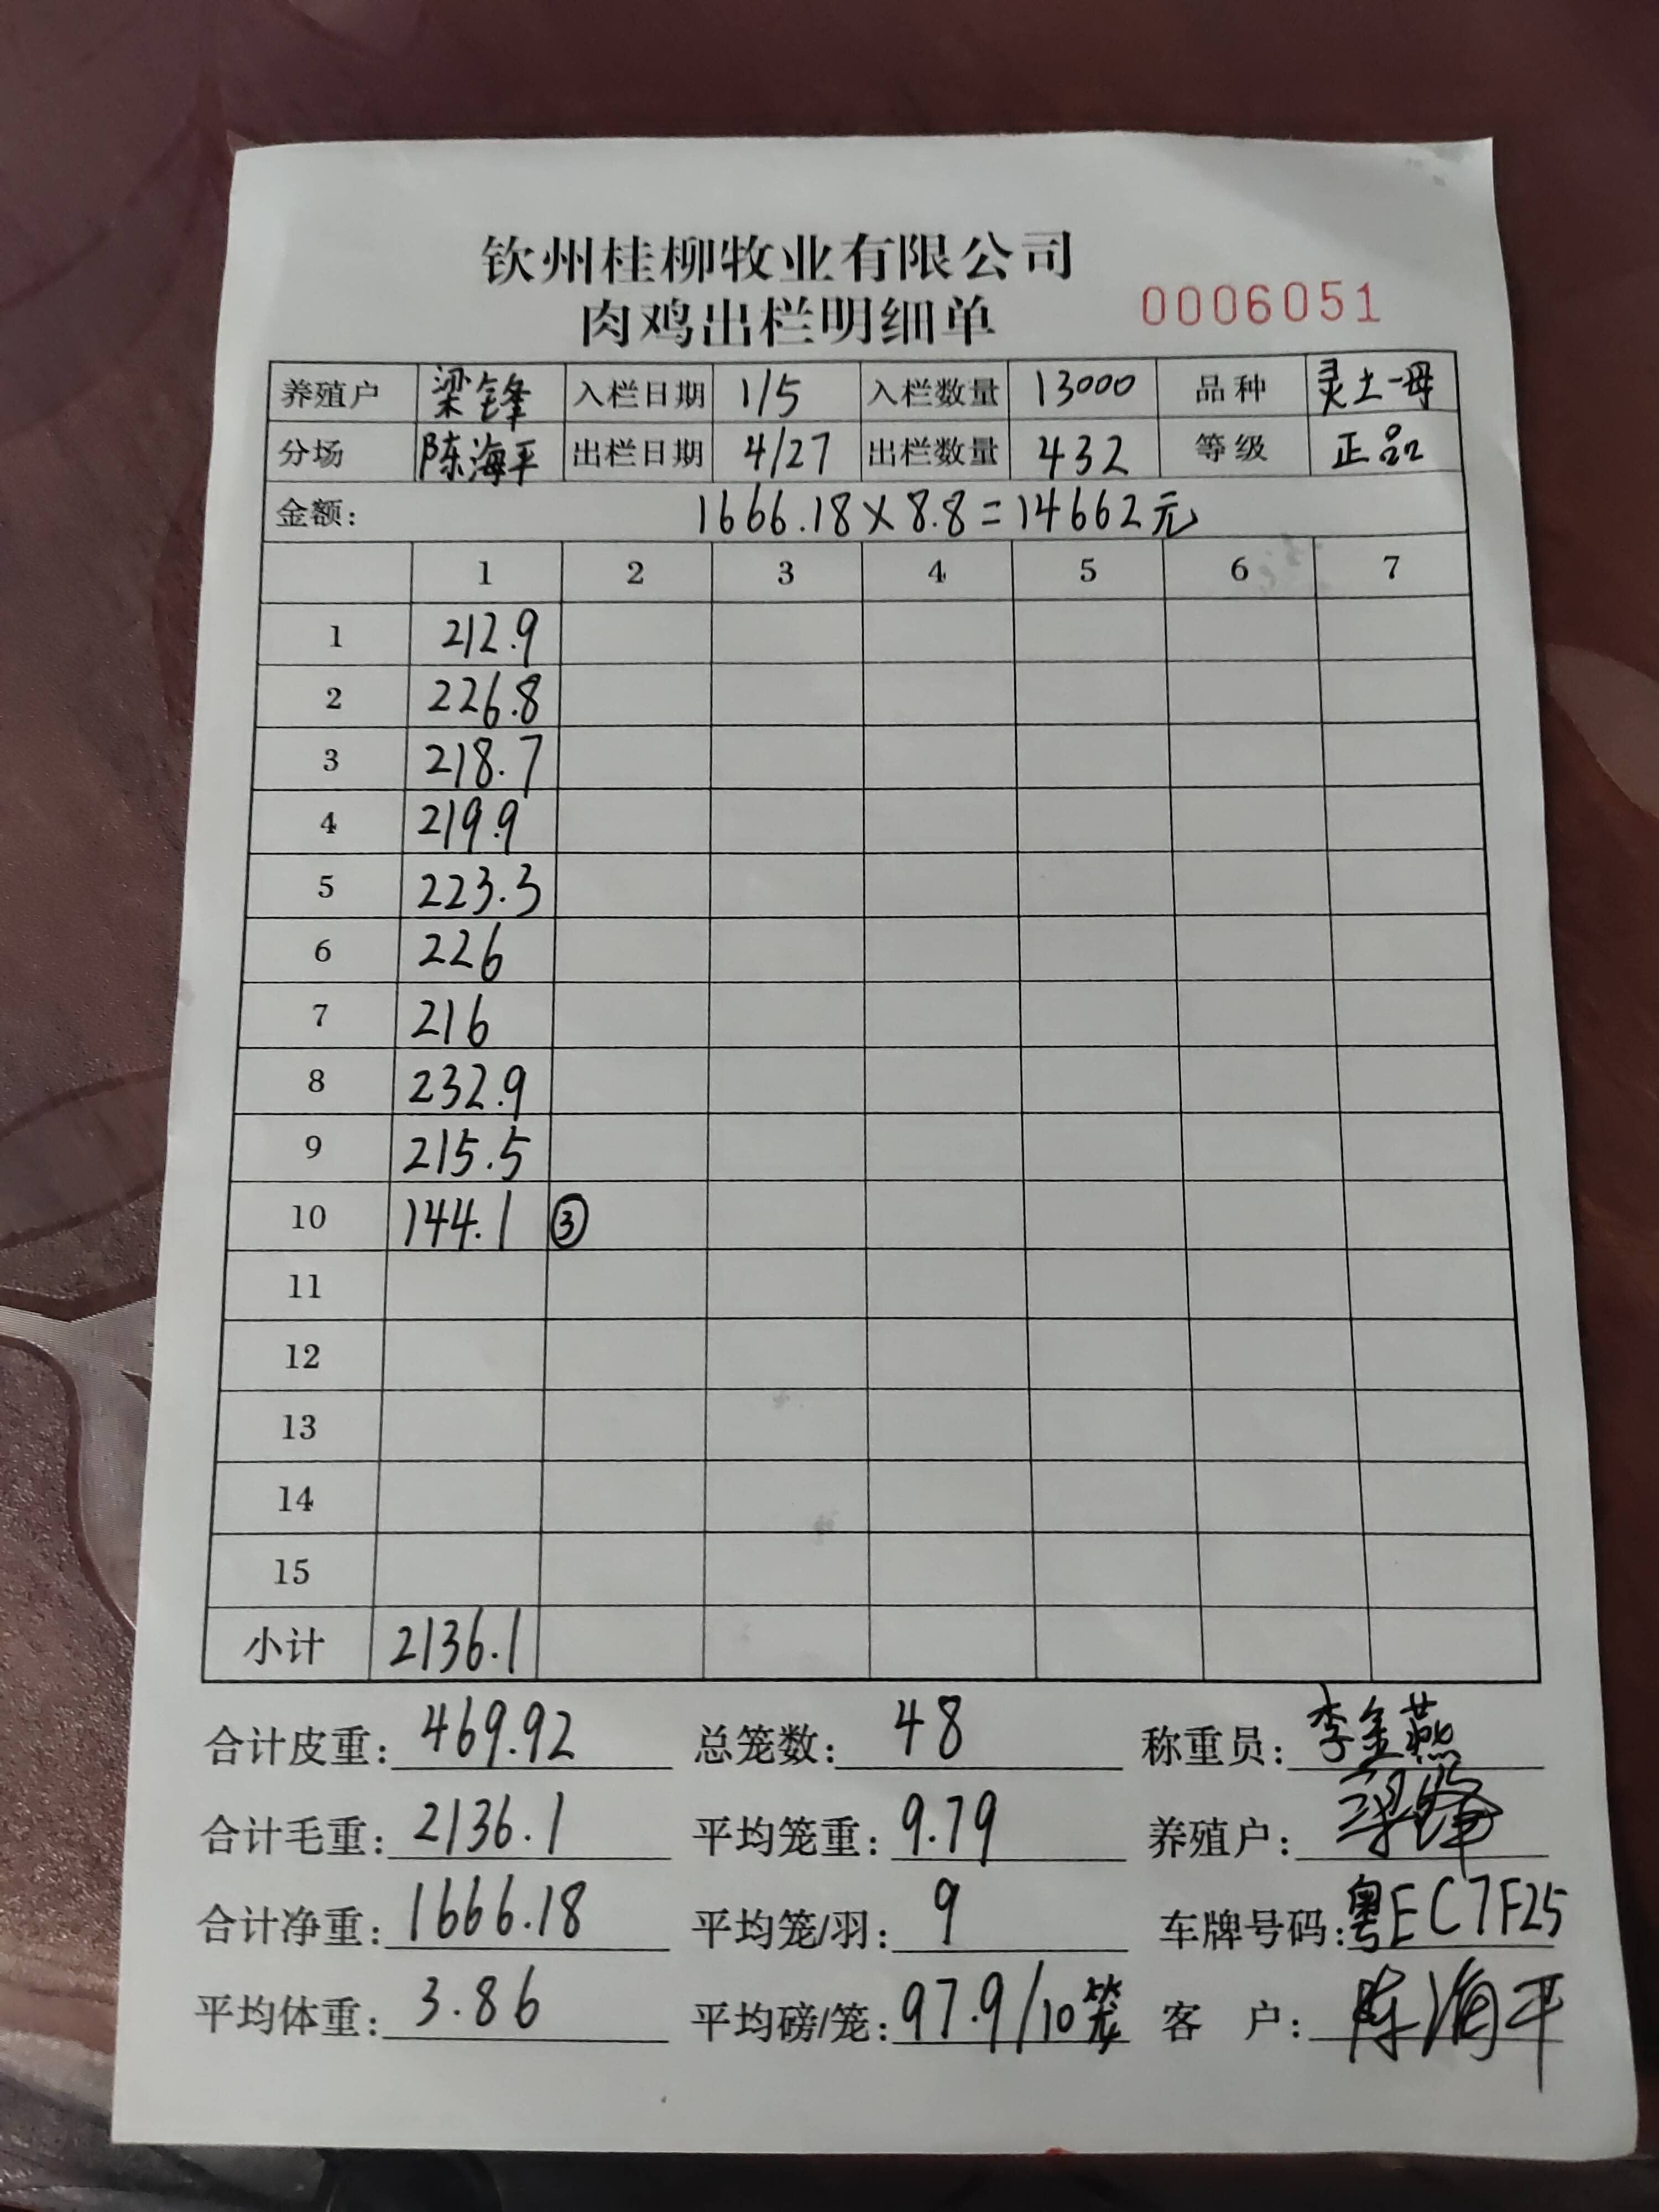 钦州桂柳牧业有限公司
肉鸡出栏明细单 0006051
养殖户 梁锋 入栏日期 1/5 入栏数量 13000 品种 灵土一母
分场 陈海平 出栏日期 4/27 出栏数量 432 等级 正品
金额: 1666.18×8.8=14662元
1 2 3 4 5 6 7
1 212.9
2 226.8
3 218.7
4 219.9
5 223.3
6 226
7 216
8 232.9
9 215.5
10 144.1 ③
11
12
13
14
15
小计 2136.1
合计皮重: 469.92 总笼数: 48 称重员: 李金燕
合计毛重: 2136.1 平均笼重: 9.79 养殖户: 梁锋
合计净重: 1666.18 平均笼/羽: 9 车牌号码: 粤EC7F25
平均体重: 3.86 平均磅/笼: 97.9/10笼 客户: 陈海平